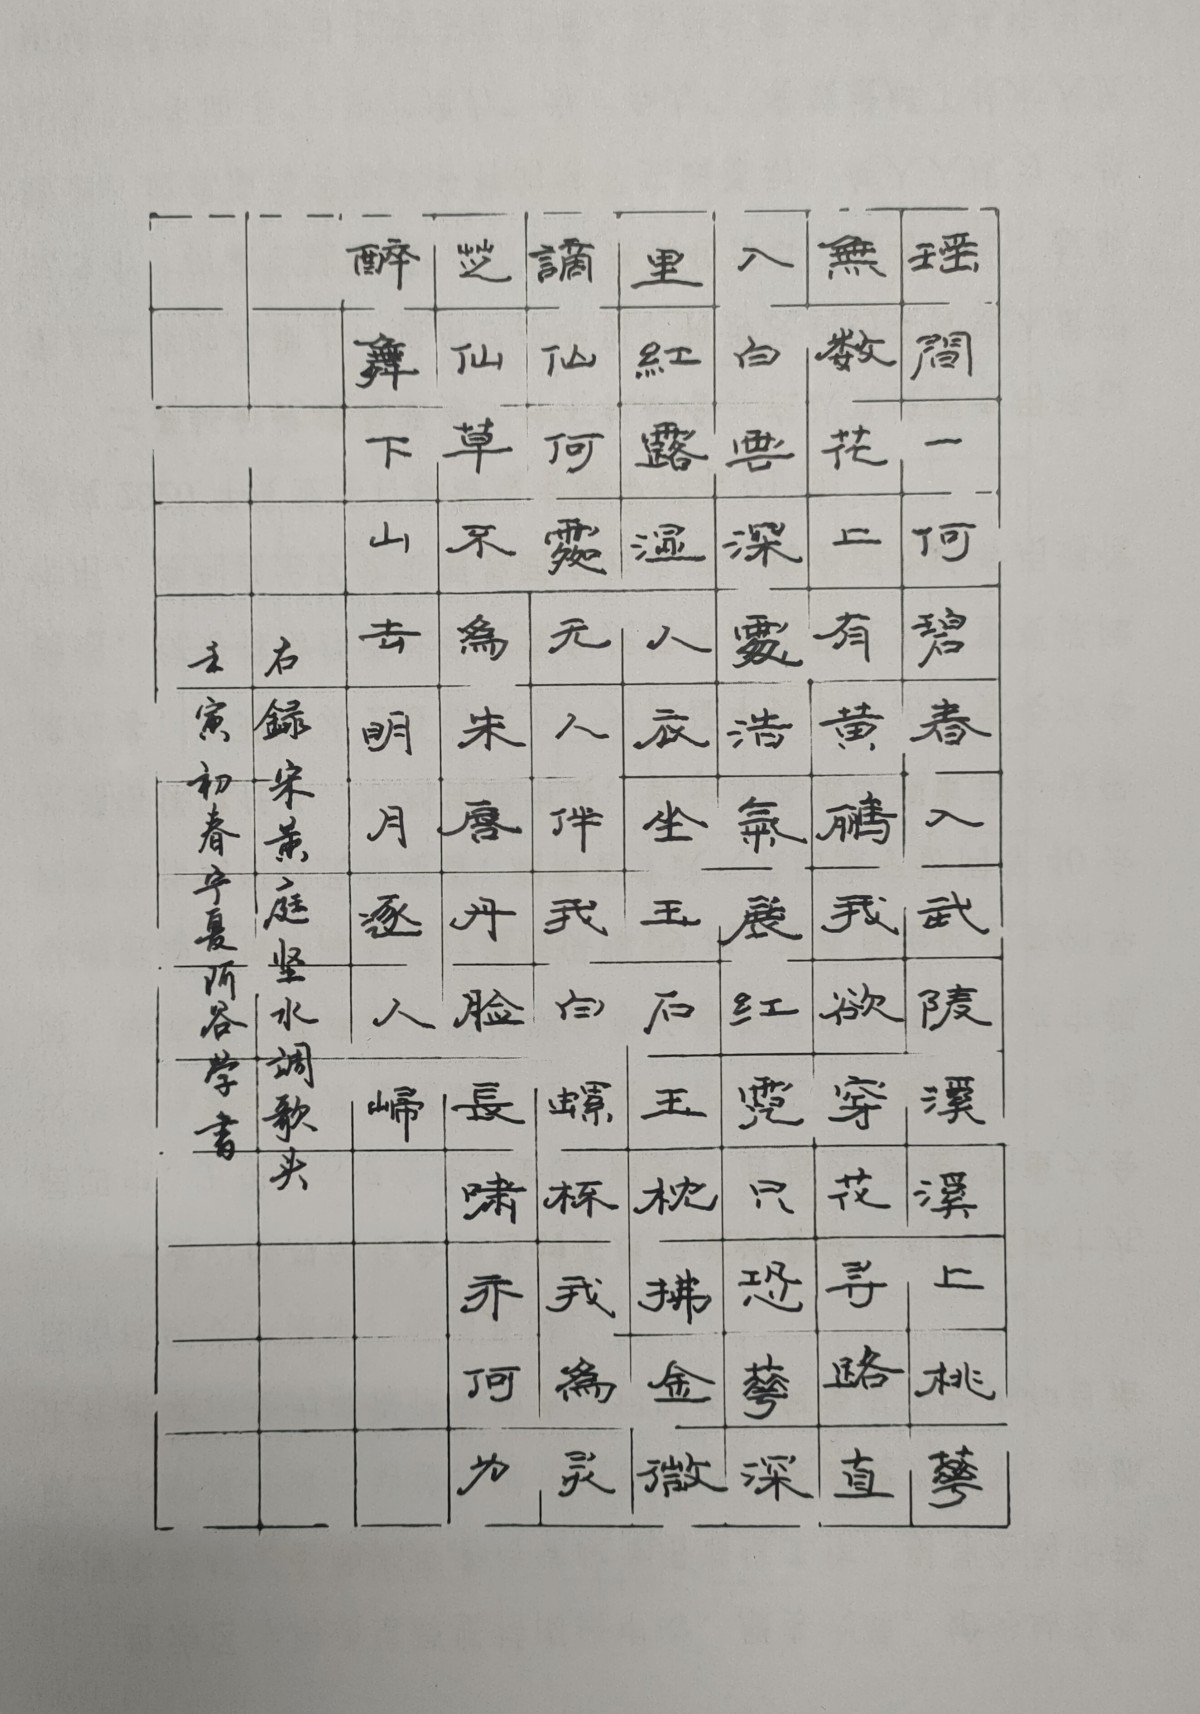 瑶間一何碧春入武陵溪溪上桃華
無数花上有黄鸝我欲穿花寻路直
入白雲深處浩氣展红霓只恐華深
里紅露濕人衣坐玉石玉枕拂金微
謫仙何處无人伴我白螺杯我為灵
芝仙草不為朱唇丹脸長啸亦何为
醉舞下山去明月逐人歸
右録宋黄庭坚水調歌头
壬寅初春宁夏阿谷学書